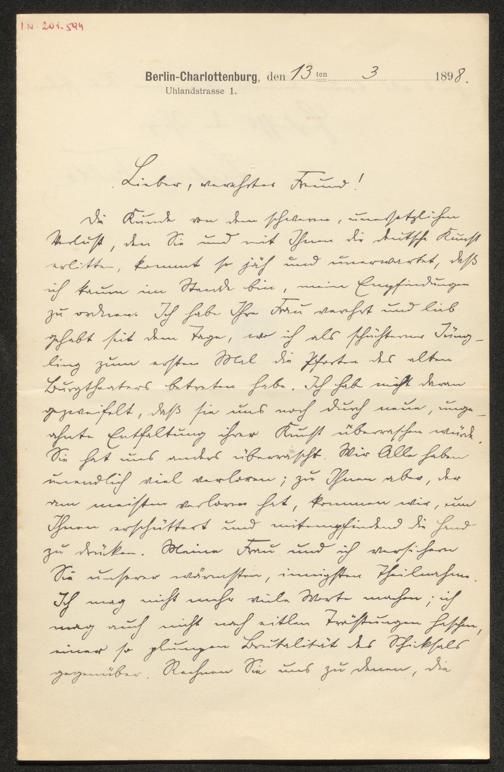 I.N. 201.594
Berlin-Charlottenburg, den 13ten 3 1898.
Uhlandstrasse 1.
Lieber, verehrter Freund!
Die Kunde von dem schweren, unersetzlichen
Verlust, den Sie und mit Ihnen die deutsche Kunst
erlitten, kommt so jäh und unerwartet, daß
ich kaum im Stande bin, meine Empfindungen
zu ordnen. Ich habe Ihre Frau verehrt und lieb
gehabt seit dem Tage, wo ich als schüchterner Jüng-
ling zum ersten Mal die Pforten des alten
Burgtheaters betreten habe. Ich hab nicht daran
gezweifelt, daß sie uns noch durch neue, unge-
ahnte Entfaltung ihrer Kunst überraschen würde.
Sie hat uns anders überrascht. Wir Alle haben
unendlich viel verloren; zu Ihnen aber, der
am meisten verloren hat, kommen wir, um
Ihnen erschüttert und mitempfindend die Hand
zu drücken. Meine Frau und ich versichern
Sie unserer wärmsten, innigsten Theilnahme.
Ich mag nicht mehr viele Worte machen; ich
mag auch nicht nach eitlen Tröstungen haschen,
einer so plumpen Brutalität des Schicksals
gegenüber. Rechnen Sie uns zu denen, die